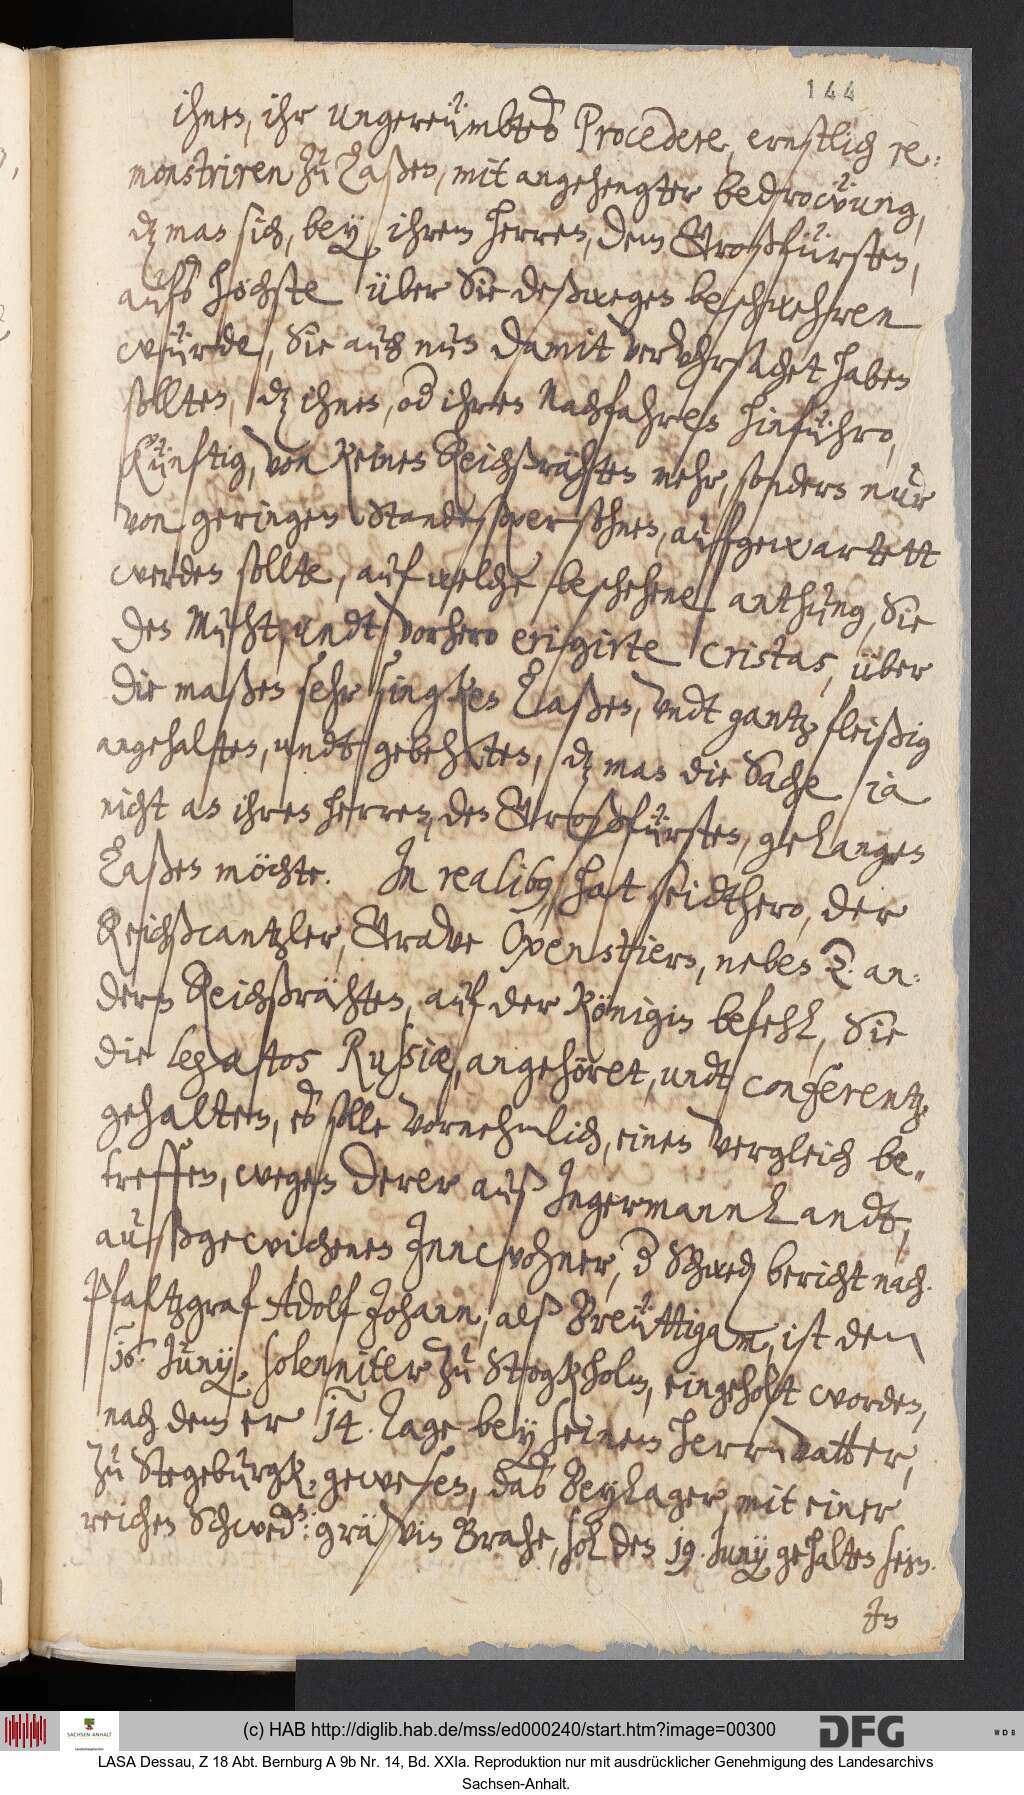 144
ihnen, ihr ungereümbtes Procedere, ernstlich re:
monstriren zu laßen, mit angehengter bedrowung,
dz man sich, bey ihrem Herren, dem Großfürsten,
aufs höchste über Sie deßwegen beschwehren
würde, Sie auch nun damit veruhrsachet haben
sollten, dz ihnen, od ihren Nachfahren hinführo,
künftig, von keinen Reichßrähten mehr, sondern nur
von geringen Standeßpersohnen, auffgewartett
werden sollte, auf welche beschehene anthung, Sie
den Muht, undt vorhero erigirte cristas, über
die maßen sehr singken laßen, undt gantz fleißig
angehalten, undt gebehten, dz man die Sache ja
nicht an ihren Herren, den Großfürsten, gelangen
laßen möchte. In realibus, hat seidthero, der
Reichßcantzler, Grave Oxenstiern, neben 2. an:
dern Reichßrähten, auf der Königin befehl, Sie
die legatos Russiæ, angehöret, undt conferentz
gehalten, es solle vornehmlich, einen vergleich be„
treffen, wegen derer auß Ingermannlandt,
außgewichenen Innwohner, d Schwed bericht nach.
Pfaltzgraf Adolf Johann, alß Breüttigam, ist den
16. Juny, solenniter zu Stogkholm, eingeholt worden,
nach dem er 14. Tage bey seinem Herrn Vatter,
zu Stegeburgk, gewesen, das Beylager, mit einer
reichen Schwed: grävin Brahe, sol den 19. Juny gehalten sein.
In
(c) HAB http://diglib.hab.de/mss/ed000240/start.htm?image=00300
SACHSEN-ANHALT
DFG
WDB
LASA Dessau, Z 18 Abt. Bernburg A 9b Nr. 14, Bd. XXIa. Reproduktion nur mit ausdrücklicher Genehmigung des Landesarchivs
Sachsen-Anhalt.